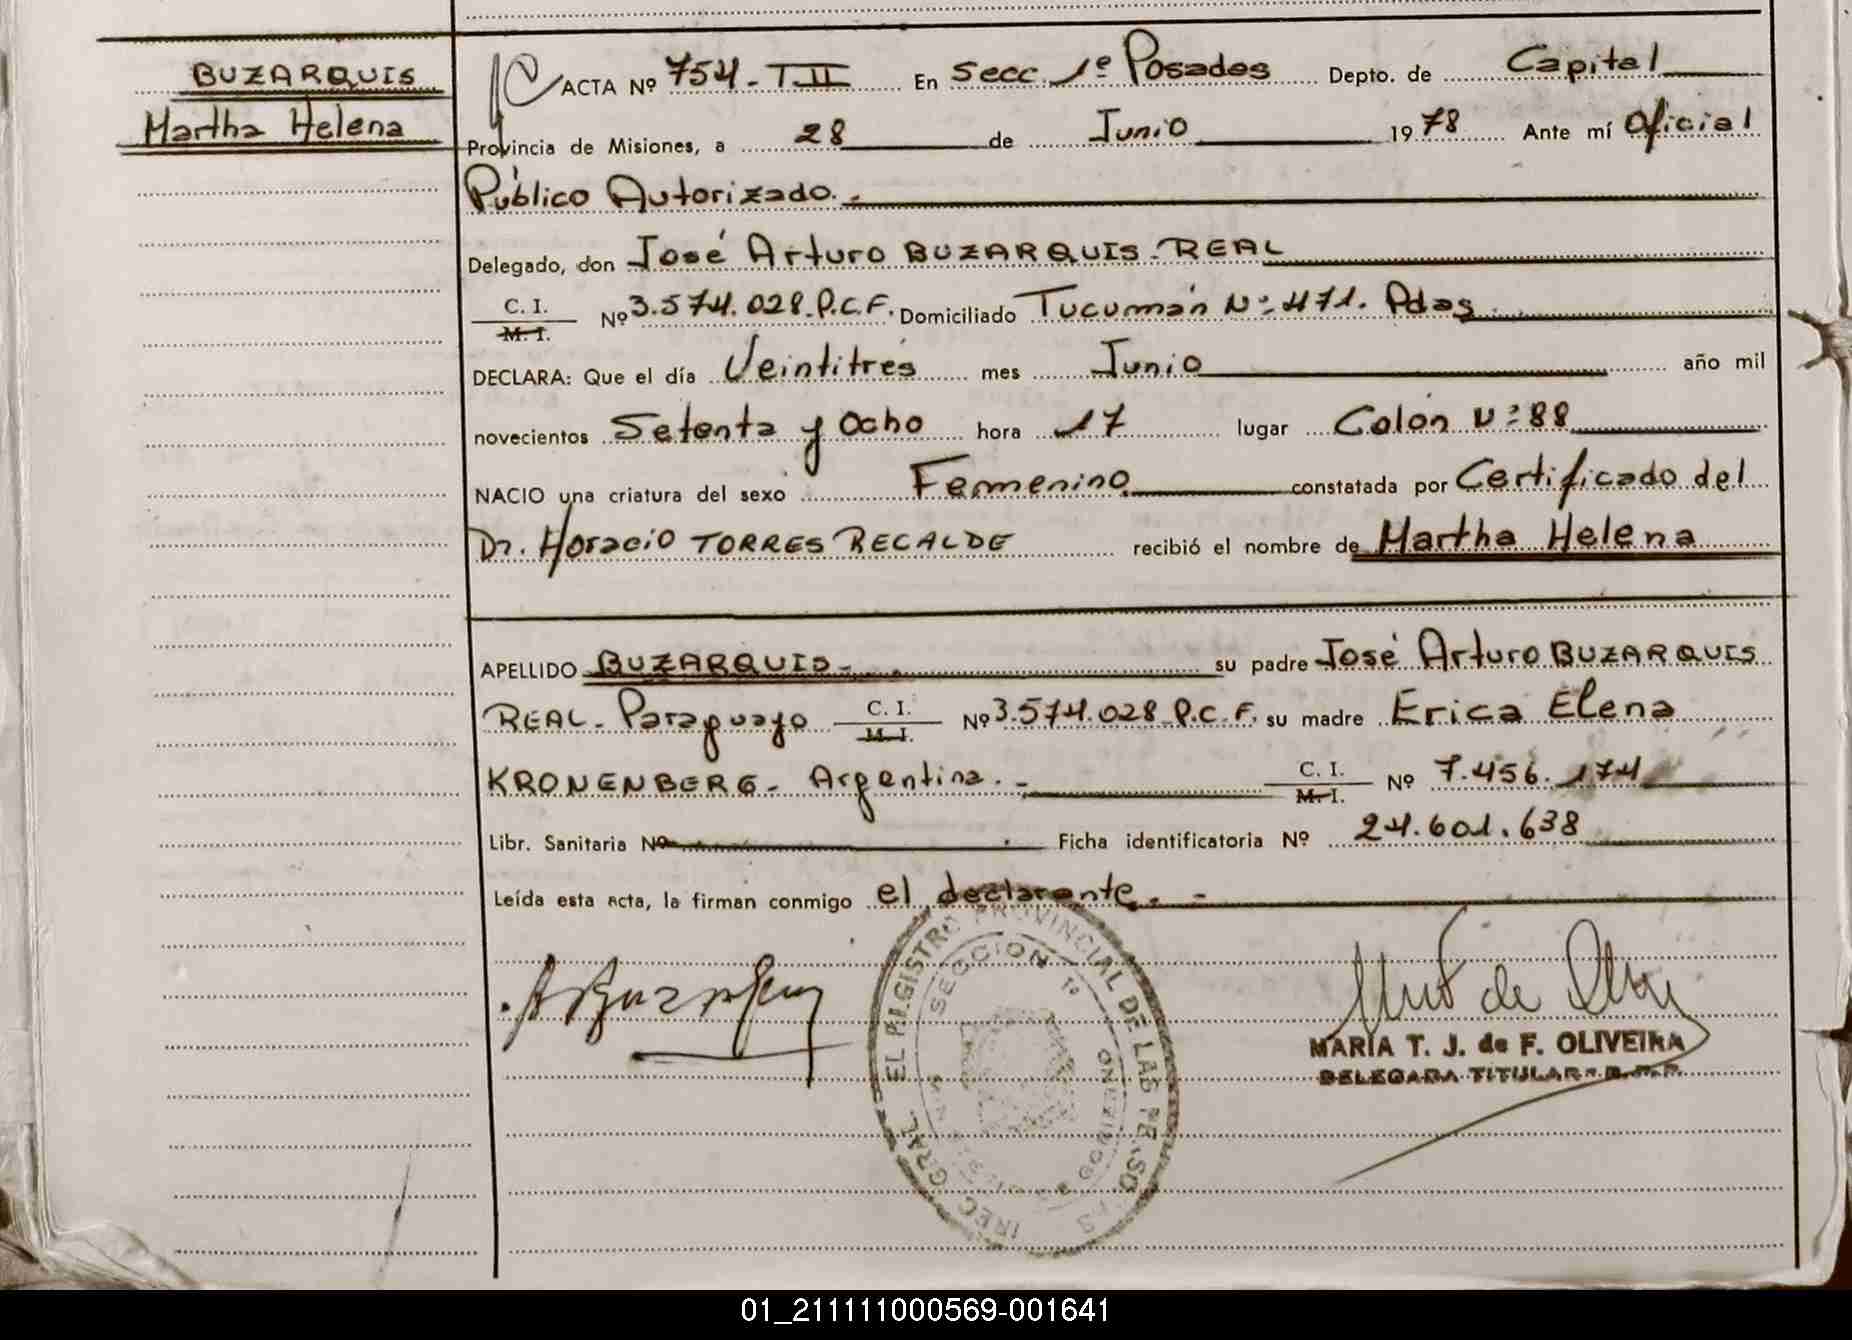 BUZARQUIS
Martha Helena
ACTA Nº 754-T.II En Secc. 1º Posadas Depto. de Capital
Provincia de Misiones, a 28 de Junio 1978 Ante mí Oficial
Público Autorizado.-
Delegado, don José Arturo BUZARQUIS-REAL
C. I. M. I. Nº 3.574.028.P.C.F. Domiciliado Tucumán Nº 471. Pdas
DECLARA: Que el día Veintitrés mes Junio año mil
novecientos Setenta y Ocho hora 17 lugar Colón Nº 88
NACIO una criatura del sexo Femenino constatada por Certificado del
Dr. Horacio TORRES RECALDE recibió el nombre de Martha Helena
APELLIDO BUZARQUIS.- su padre José Arturo BUZARQUIS
REAL- Paraguayo C. I. M. I. Nº 3.574.028 P.C.F. su madre Erica Elena
KRONENBERG- Argentina.- C. I. M. I. Nº 7.456.174
Libr. Sanitaria Nº Ficha identificatoria Nº 24.601.638
Leída esta acta, la firman conmigo el declarante.-
GRAL. EL REGISTRO PROVINCIAL DE LAS
SECCION 1º
MARIA T. J. de F. OLIVEIRA
DELEGADA TITULAR
01_211111000569-001641